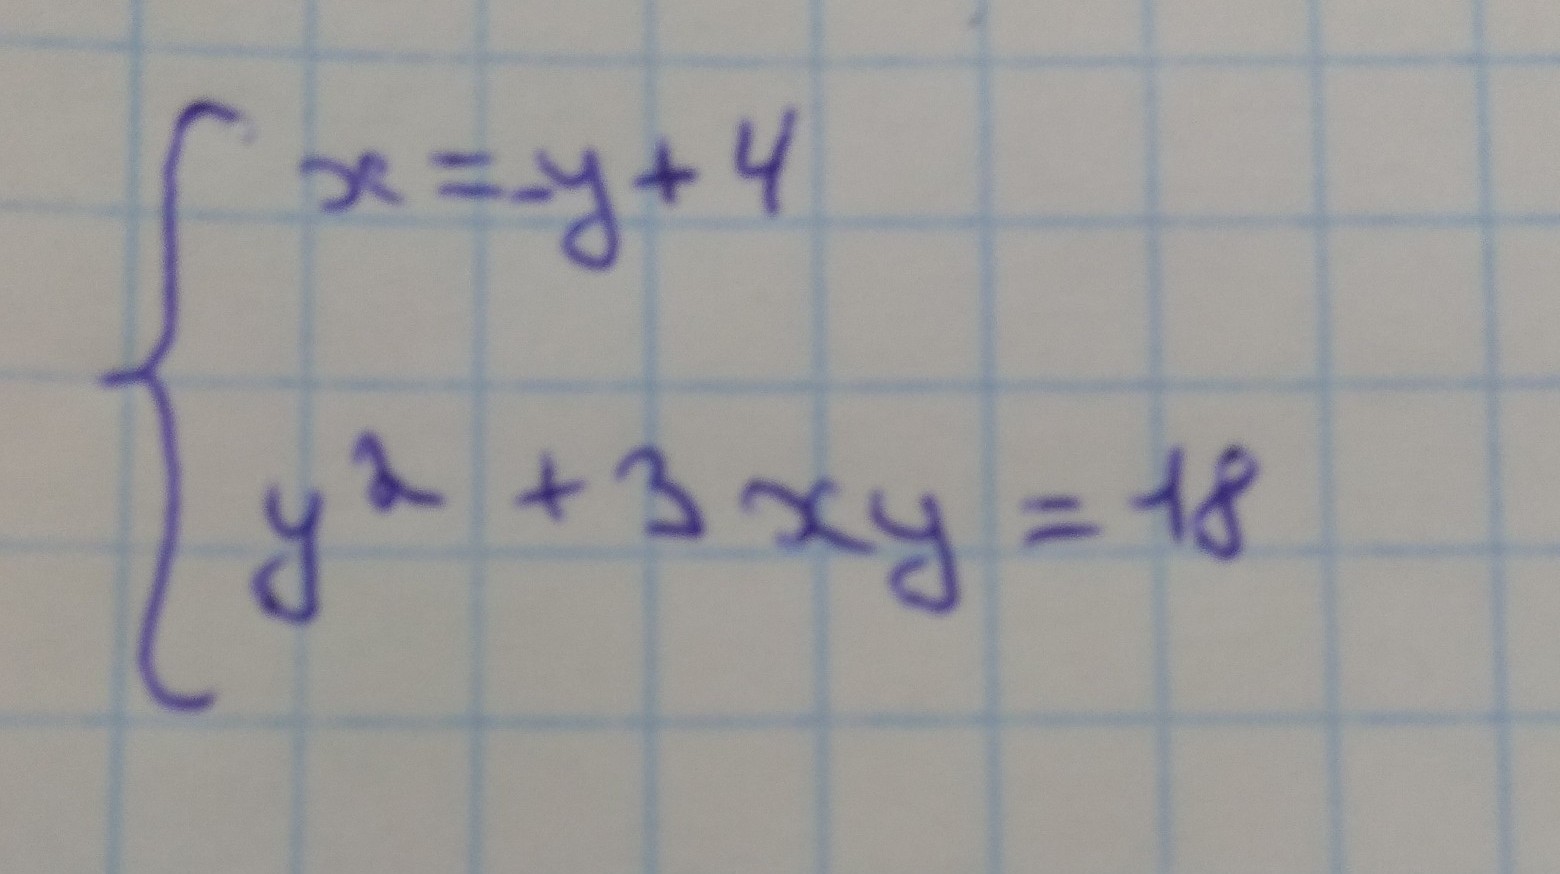 x = -y + 4
y² + 3xy = 18